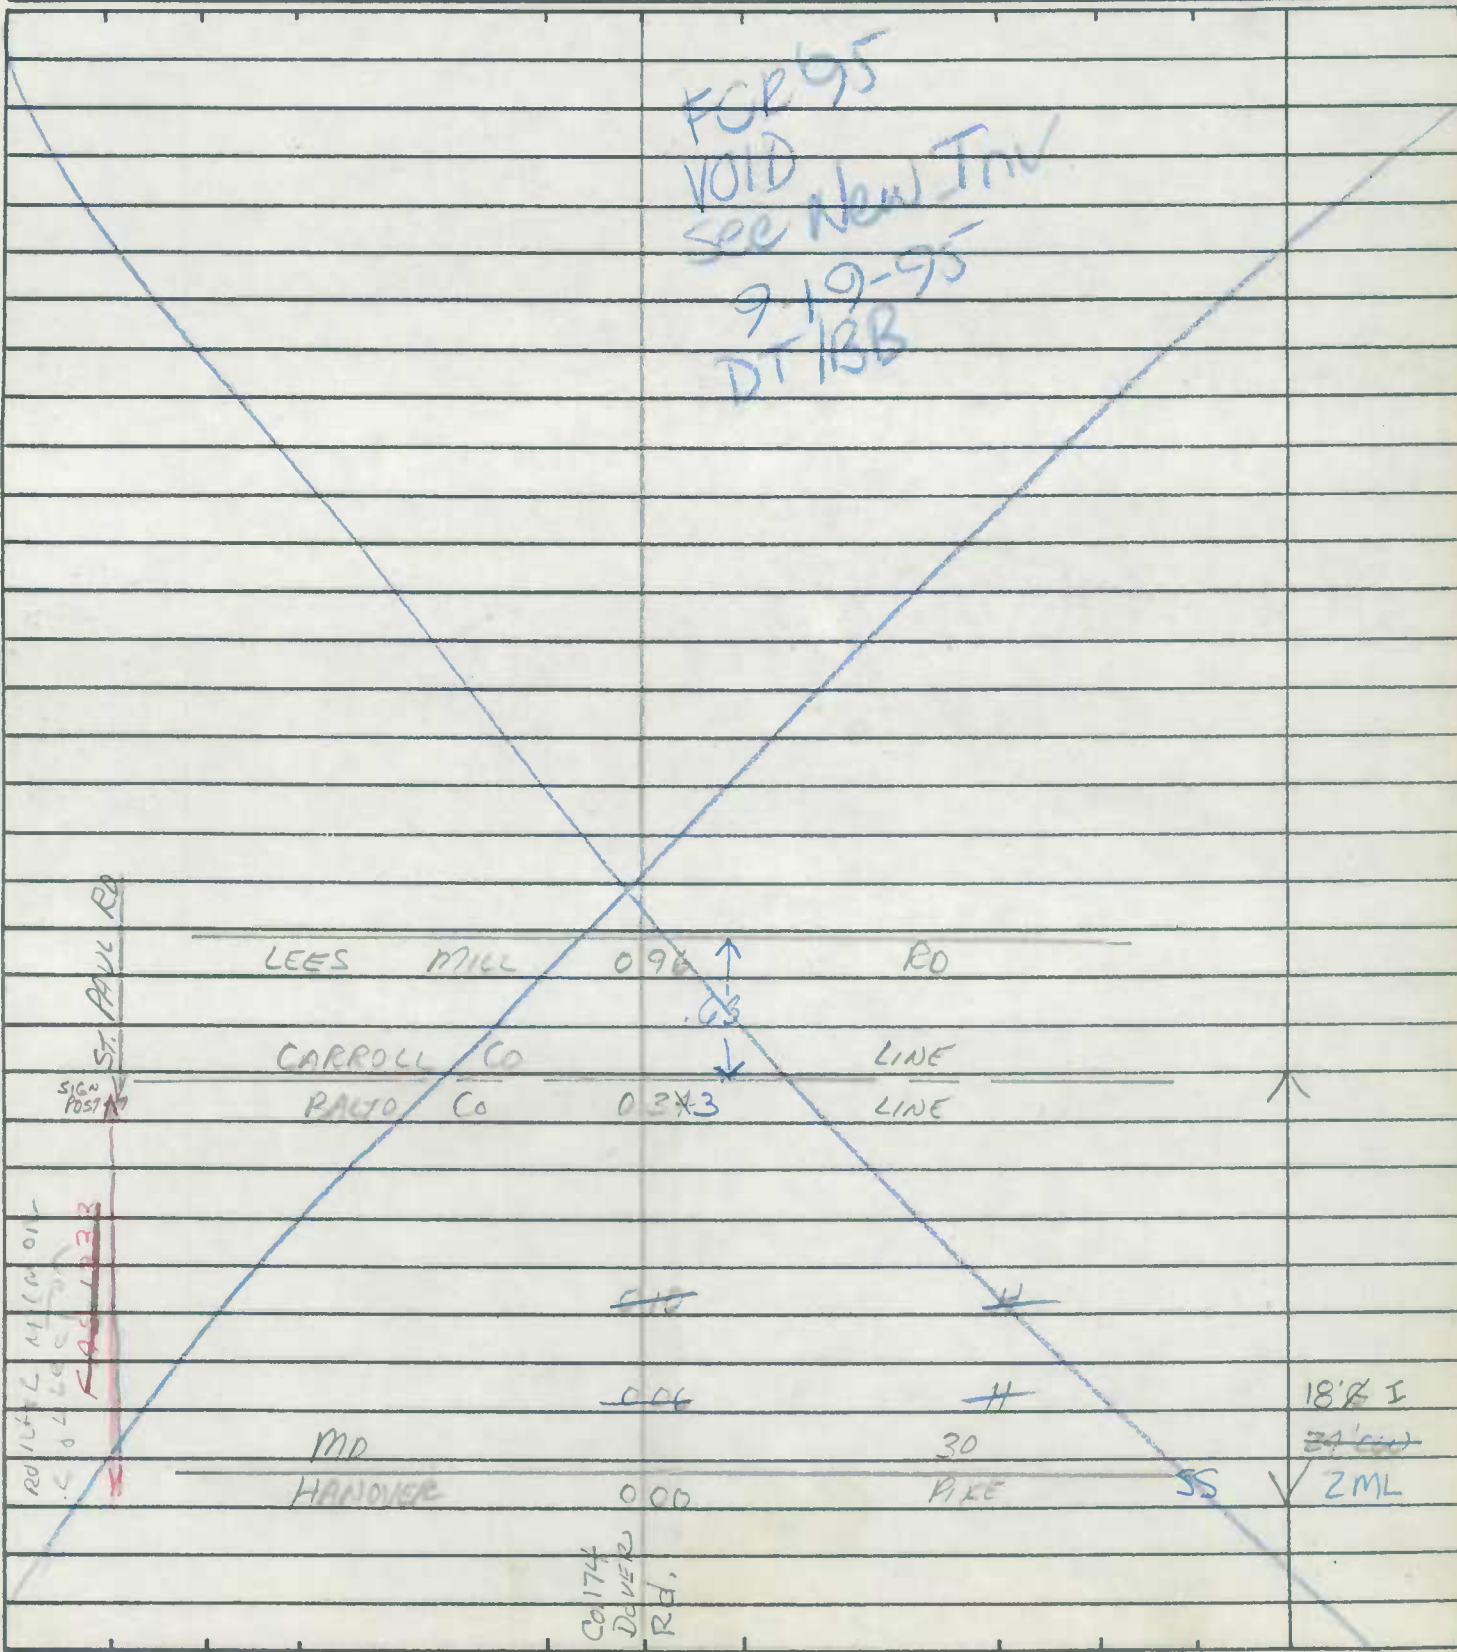 FOR 95
VOID
See New Inv
9-19-95
DT/BB
ST. PAUL RD
LEES MILL 0 96 RD
.63
CARROLL CO LINE
SIGN
POST
BALTO Co 0.3 3 LINE
H
0 06 H
18' I
MD 30
HANOVER 0 00 PIKE SS 2 ML
Co. 174
DOVER
Rd.